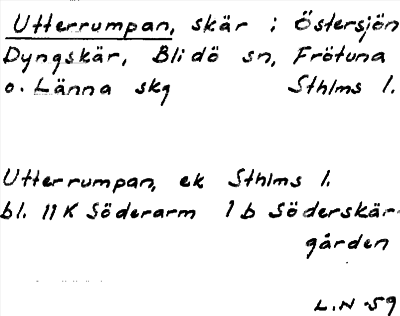 Utterrumpan, skär i Östersjön
Dyngskär, Blidö sn, Frötuna
o. Länna skg Sthlms l.
Utterrumpan, ek Sthlms l.
bl. 11K Söderarm 1b Söderskär-
gården
L.N -59